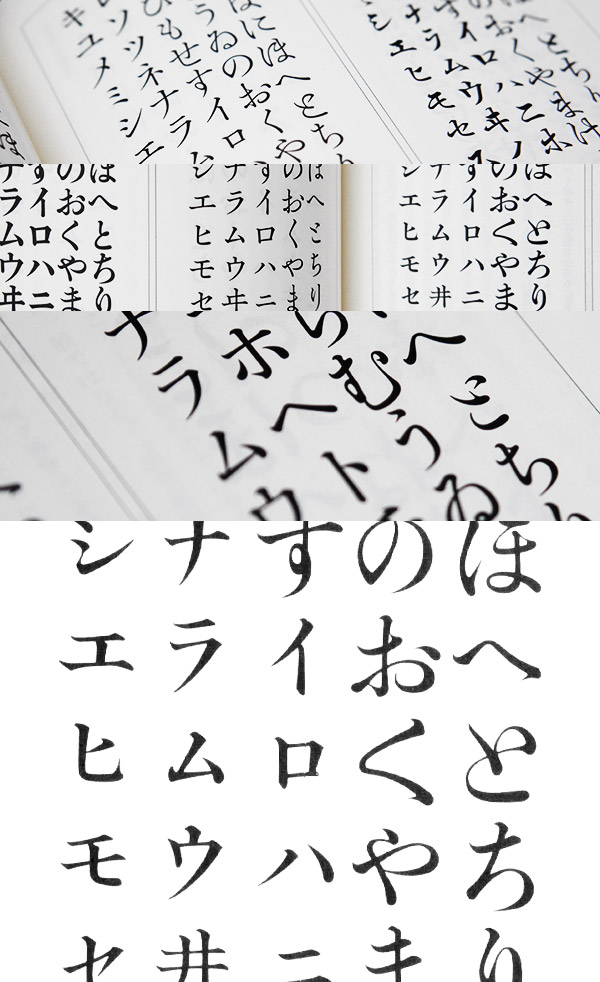 にほへとち
うゐのおくや
ひもせすイロ
ソツネナラム
キユメミシエ
とち
おくやまけ
すイロハニホ
ナラムウヰノ
シエヒモセ
ほへとちり
のおくやま
すイロハニ
ナラムウヰ
ほへとちり
のおくやま
すイロハニ
ナラムウヰ
シエヒモセ
ほへとちり
のおくやま
すイロハニ
ナラムウ井
シエヒモセ
へとち
らむうゐ
ホヘト
ナラムウ
ほへとちり
のおくやま
すイロハニ
ナラムウ井
シエヒモセ